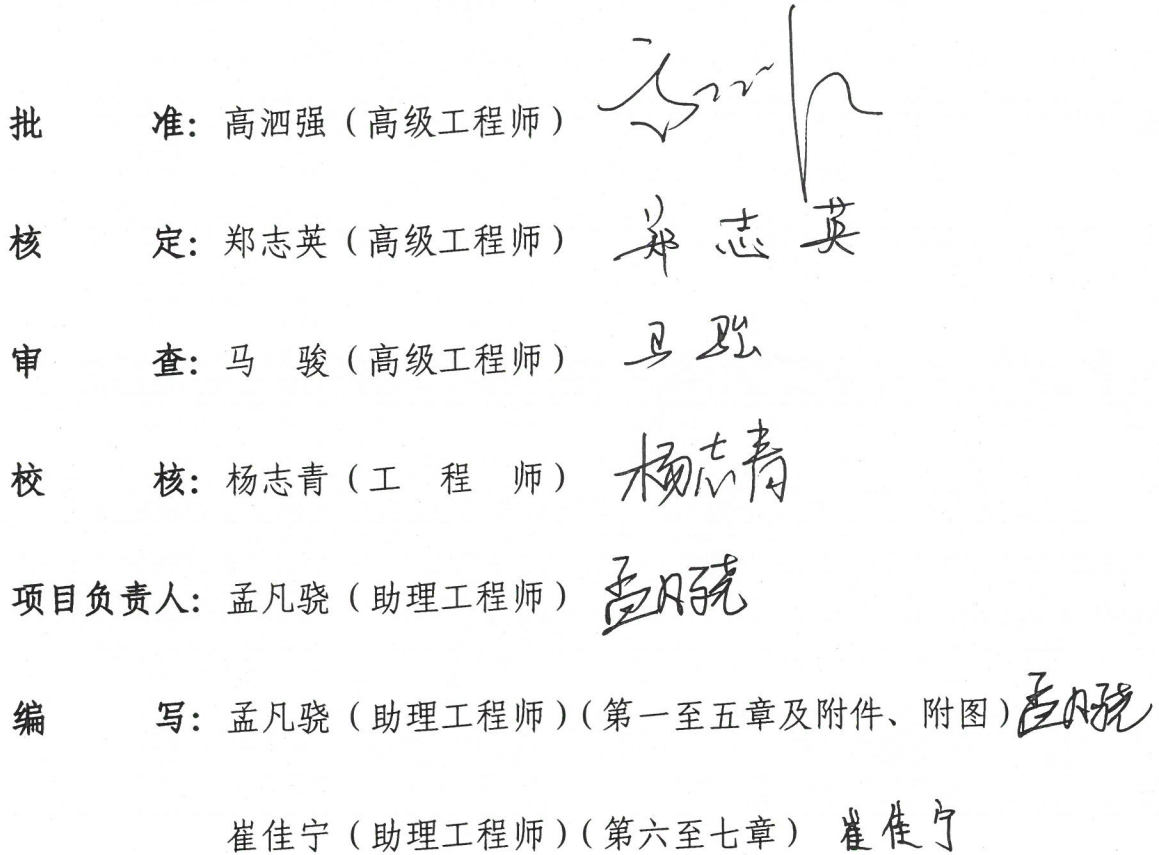 批准：高泗强（高级工程师）
核定：郑志英（高级工程师）郑志英
审查：马骏（高级工程师）马骏
校核：杨志青（工程师）杨志青
项目负责人：孟凡骁（助理工程师）孟凡骁
编写：孟凡骁（助理工程师）（第一至五章及附件、附图）孟凡骁
崔佳宁（助理工程师）（第六至七章）崔佳宁